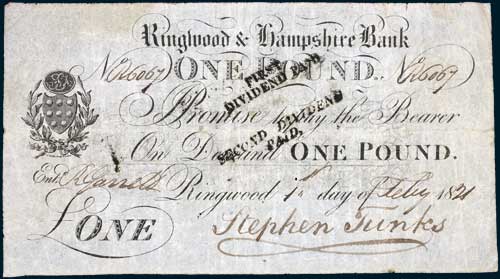 Ringwood & Hampshire Bank
No 26067 ONE POUND. No 26067
FIRST
DIVIDEND PAID
I Promise to pay the Bearer
SECOND DIVIDEND
PAID,
On Demand ONE POUND.
Entd
Ringwood 1st day of Feby 1821
£ONE
Stephen Tunks